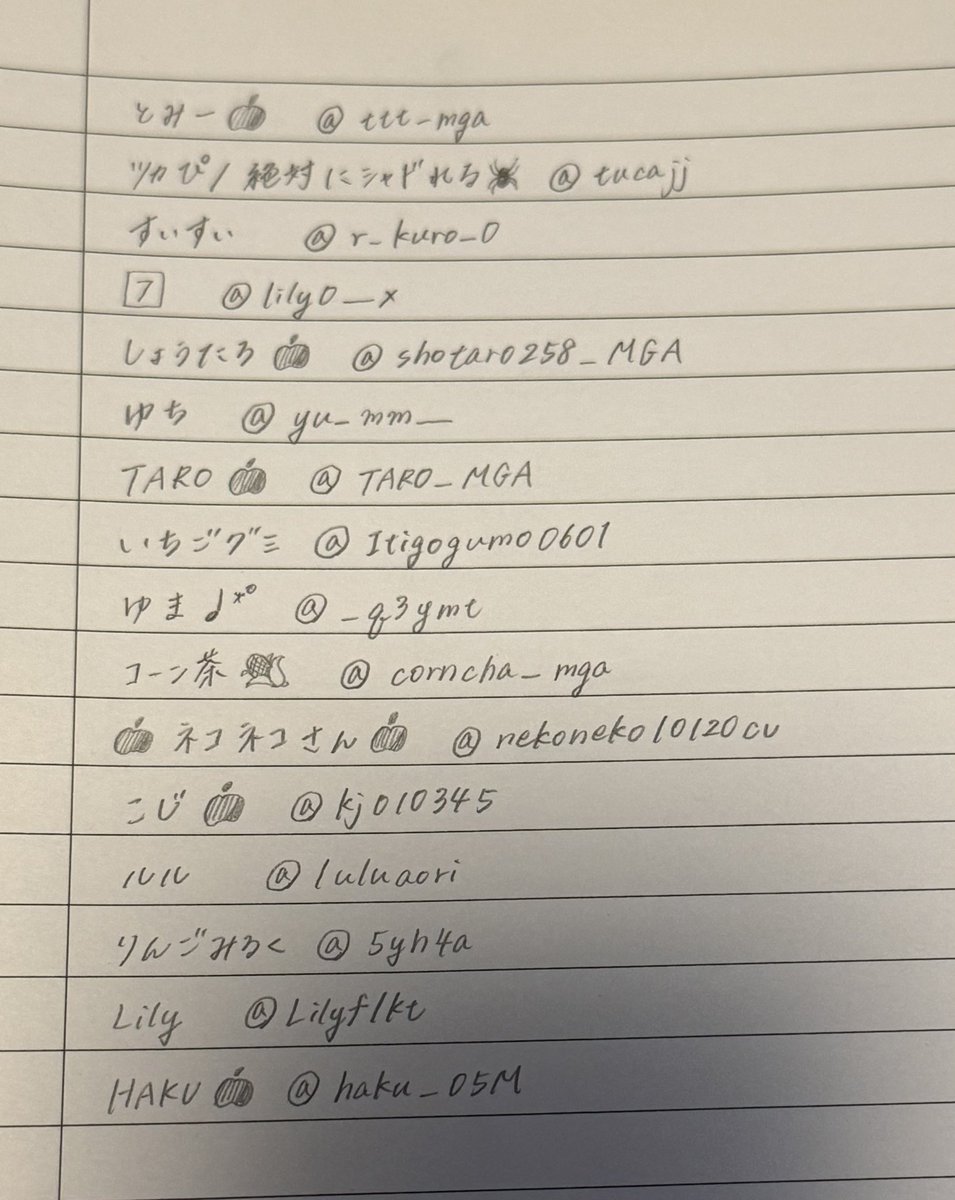 とみー🍎 @ttt_mga
ツカぴ/絶対にシャドれる🕷 @tucajj
すいすい @r_kuro_0
7 @lily0__x
しょうたろ🍎 @shotaro258_MGA
ゆち @yu_mm__
TARO🍎 @TARO_MGA
いちごグミ @Itigogumo0601
ゆま♩*° @_q3ymt
コーン茶🌽 @corncha_mga
🍎ネコネコさん🍎 @nekoneko10120cu
こじ🍎 @kj010345
ルル @luluaori
りんごみろく @5yh4a
Lily @Lilyflkt
HAKU🍎 @haku_05M